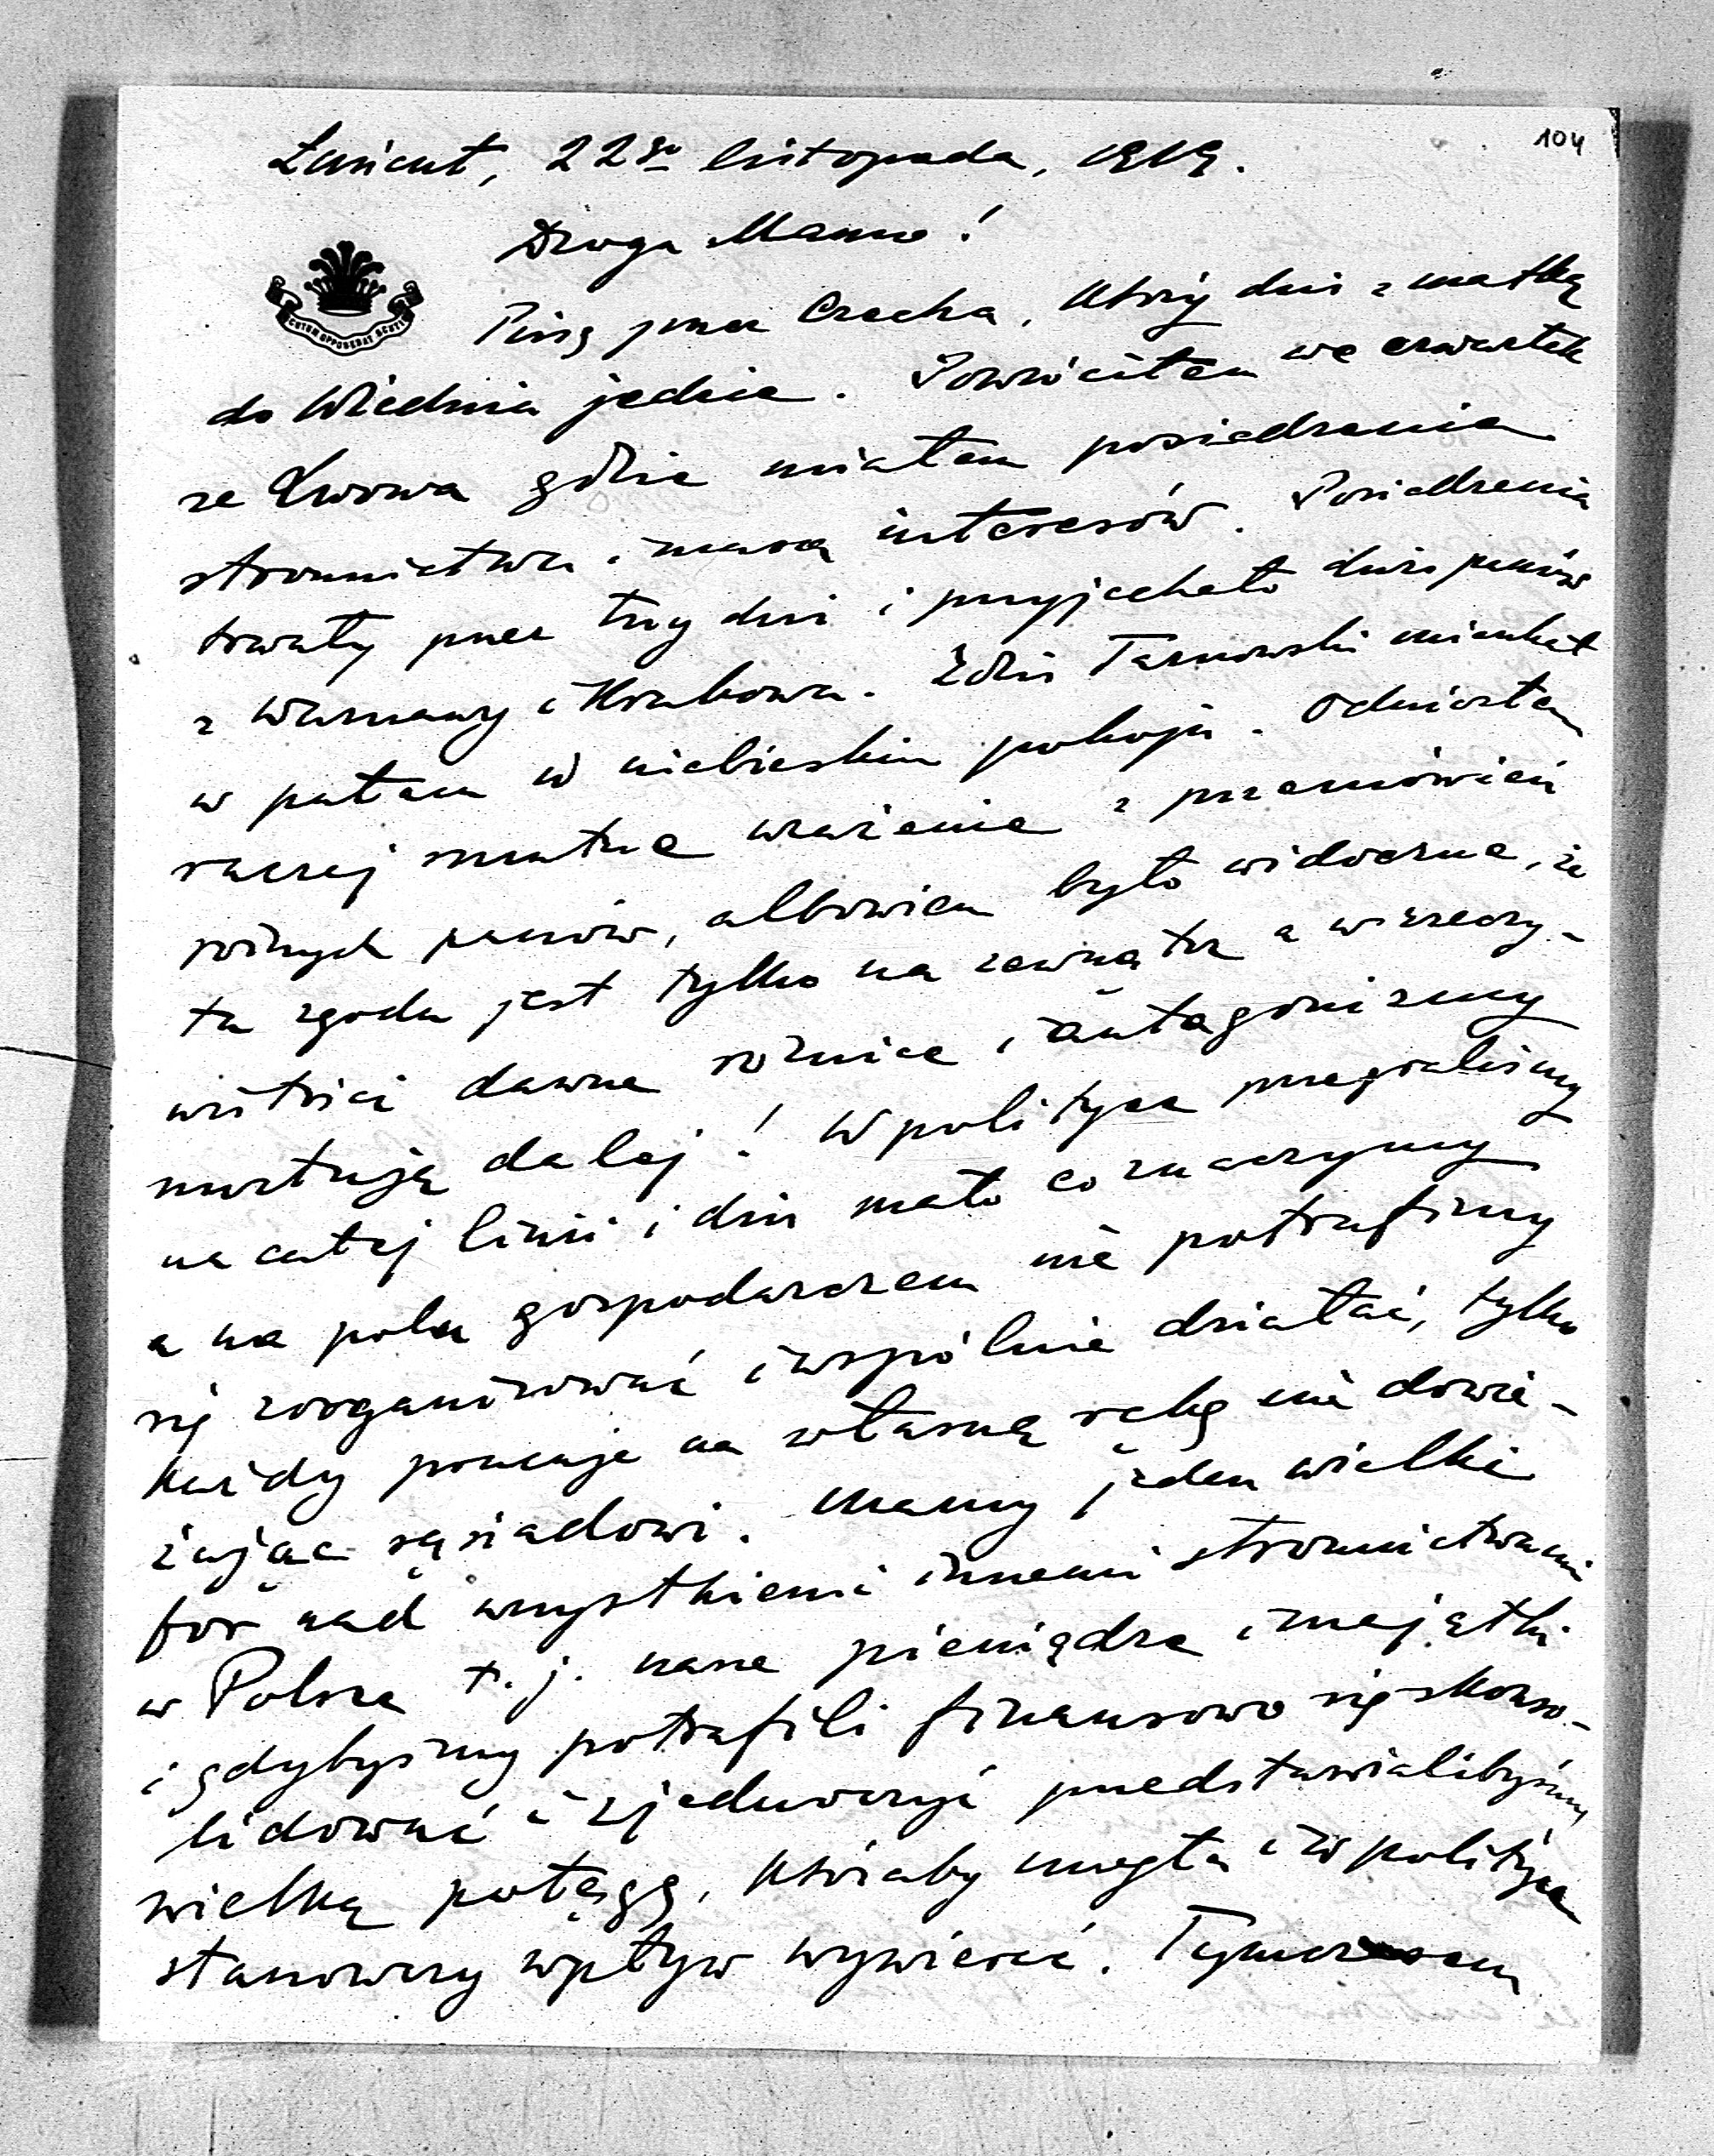 104
Łańcut, 22go listopada, 1919.
Droga Mamo!
CUTEM OPPONERAT SCUTI
Piszę przez Czecha, który dziś z matką
do Wiednia jedzie. Powróciłem we czwartek
ze Lwowa gdzie miałem posiedzenia
stronnictwa i masę interesów. Posiedzenia
trwały przez trzy dni i przyjechało dużo panów
z Warszawy i Krakowa. Zdziś Tarnowski mieszkał
w pałacu w niebieskim pokoju. Odniosłem
raczej smutne wrażenie z przemówień
różnych panów, albowiem było widoczne, że
ta zgoda jest tylko na zewnątrz a w rzeczy-
wistości dawne różnice i antagonizmy
nurtują dalej! W polityce przegraliśmy
na całej linii i dziś mało co znaczymy
a na polu gospodarczem nie potrafimy
się zorganizować i wspólnie działać, tylko
każdy pracuje na własną rękę nie dowie-
żając sąsiadowi. Mamy jeden wielki
for nad wszystkiemi innemi stronnictwami
w Polsce t. j. nasze pieniądze i majątki
i gdybyśmy potrafili finansowo się skonso-
lidować i zjednoczyć przedstawialibyśmy
wielką potęgę, któraby mogła i w polityce
stanowczy wpływ wywierać. Tymczasem